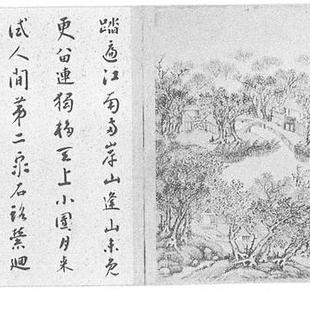 踏遍江南南岸山逢山未免
更留連獨攜天上小團月來
試人間第二泉石路縈廻